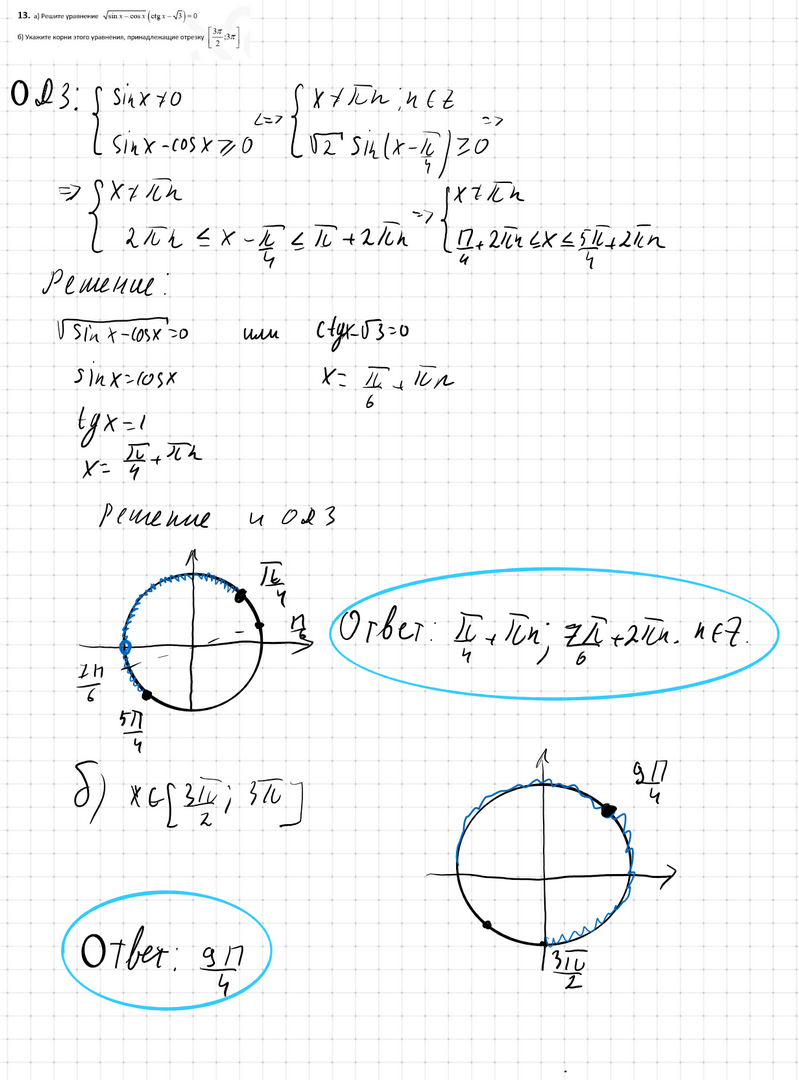 13. а) Решите уравнение √(sin x − cos x) (ctg x − √3) = 0
б) Укажите корни этого уравнения, принадлежащие отрезку [3π/2; 3π]
ОДЗ: { sinx ≠ 0 <=> { x ≠ πn ; n ∈ Z =>
{ sinx - cosx ⩾ 0 { √2 sin(x - π/4) ⩾ 0
=> { x ≠ πn => { x ≠ πn
{ 2πn ≤ x - π/4 ≤ π + 2πn { π/4 + 2πn ≤ x ≤ 5π/4 + 2πn
Решение:
√(sinx - cosx) = 0 или ctgx - √3 = 0
sinx = cosx x = π/6 + πn
tgx = 1
x = π/4 + πn
Решение и ОДЗ
π/4
π/6
7π/6
5π/4
Ответ: π/4 + πn; 7π/6 + 2πn. n ∈ Z.
б) x ∈ [3π/2; 3π]
9π/4
3π/2
Ответ: 9π/4